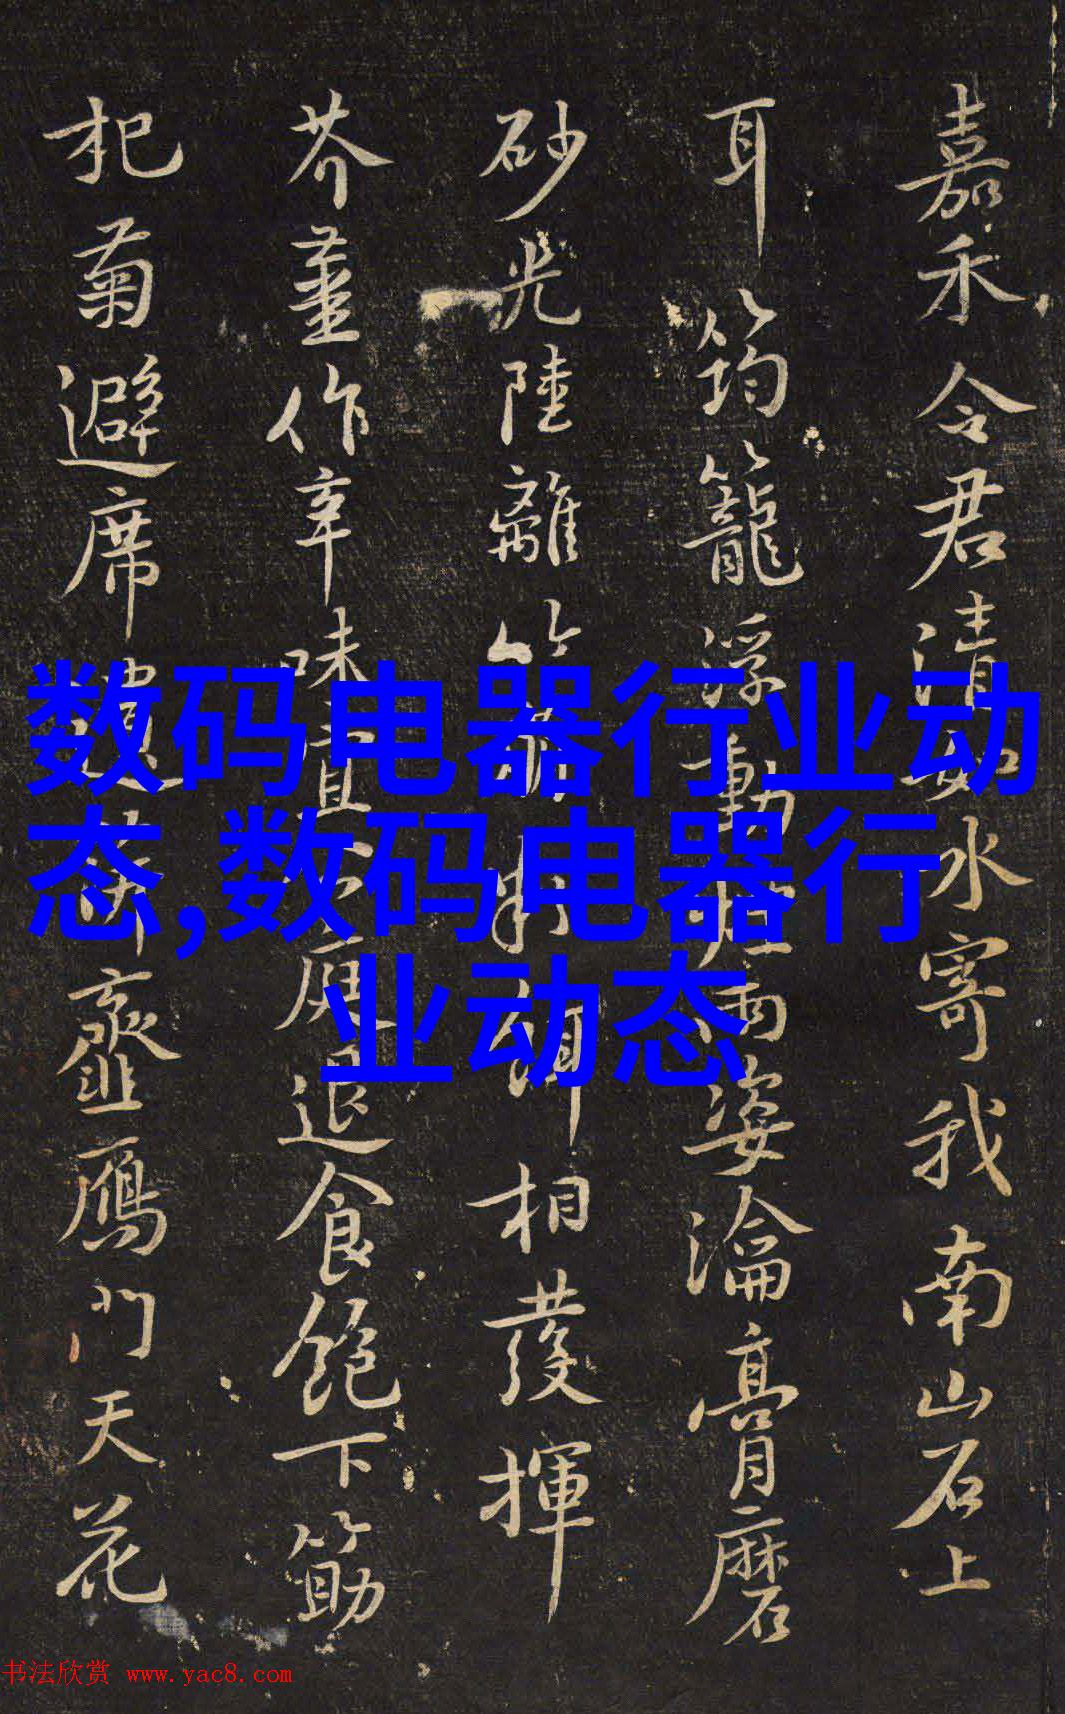 嘉禾令君清如水寄我南山石上
耳筠籠浮動雨姿瀹膏磨
砂光陸離相發揮
芥薑作辛味宜退食飽下筯
杞菊避席遺虀鴈門天花
数码电器行业动
态,数码电器行
业动态
书法欣赏 www.yac8.com